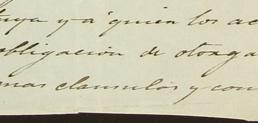 suya y á quien los ac
obligacion de otorga
mas clausulos y con